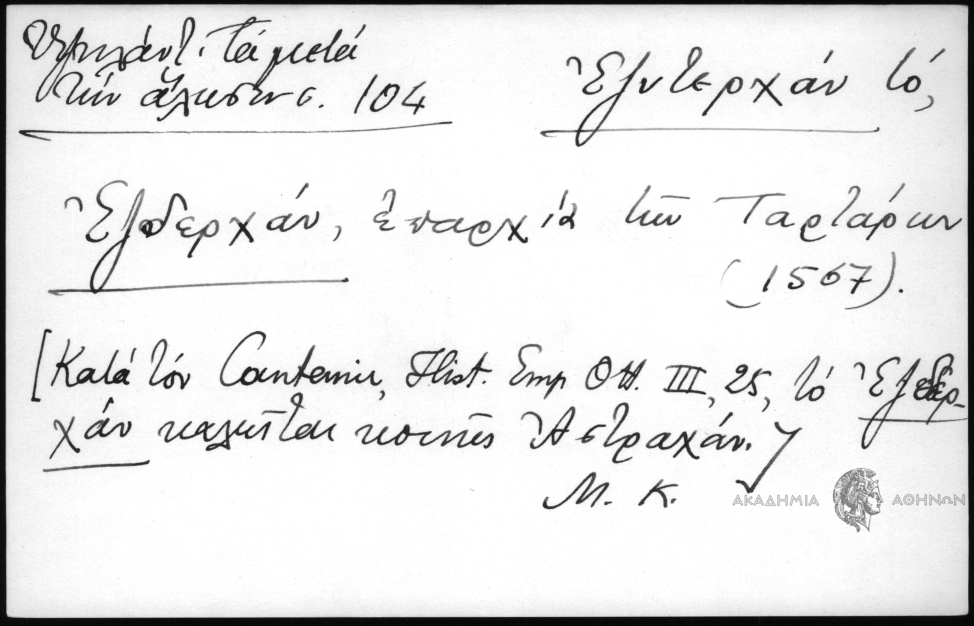 Ὑψηλάντ. Τά μετά
τήν ἅλωσιν σ. 104
Ἐζντερχάν τό,
Ἐζδερχάν, ἐπαρχία τῶν Ταρτάρων
(1567).
[Κατά τόν Cantemir, Hist. Emp Ott. III, 25, τό Ἐζεδερ-
χάν καλεῖται κοινῶς Ἀστραχάν.]
Μ. Κ.
ΑΚΑΔΗΜΙΑ ΑΘΗΝΩΝ